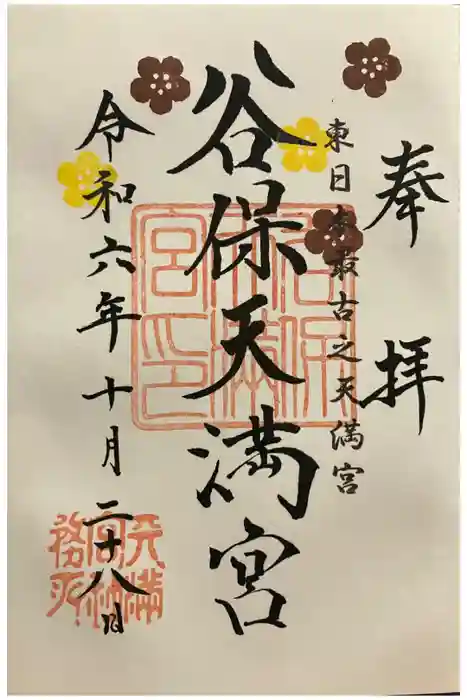 奉拝
東日本最古之天満宮
谷保天満宮
令和六年十月二十八日
谷保天満宮印